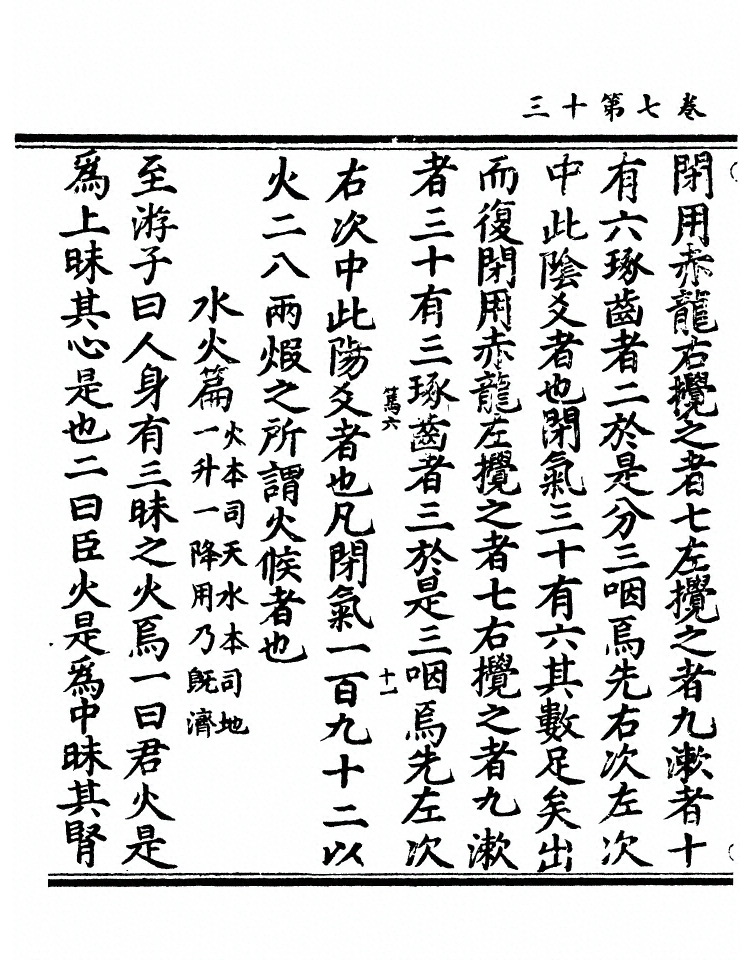 三十第七卷
閉用赤龍右攪之者七左攪之者九漱者十
有六琢齒者二於是分三咽焉先右次左次
中此陰爻者也閉氣三十有六其數足矣出
而復閉用赤龍左攪之者七右攪之者九漱
者三十有三琢齒者三於是三咽焉先左次
篤六
十一
右次中此陽爻者也凡閉氣一百九十二以
火二八兩煆之所謂火候者也
水火篇
火本司天水本司地
一升一降用乃既濟
至游子曰人身有三昧之火焉一曰君火是
爲上昧其心是也二曰臣火是爲中昧其腎